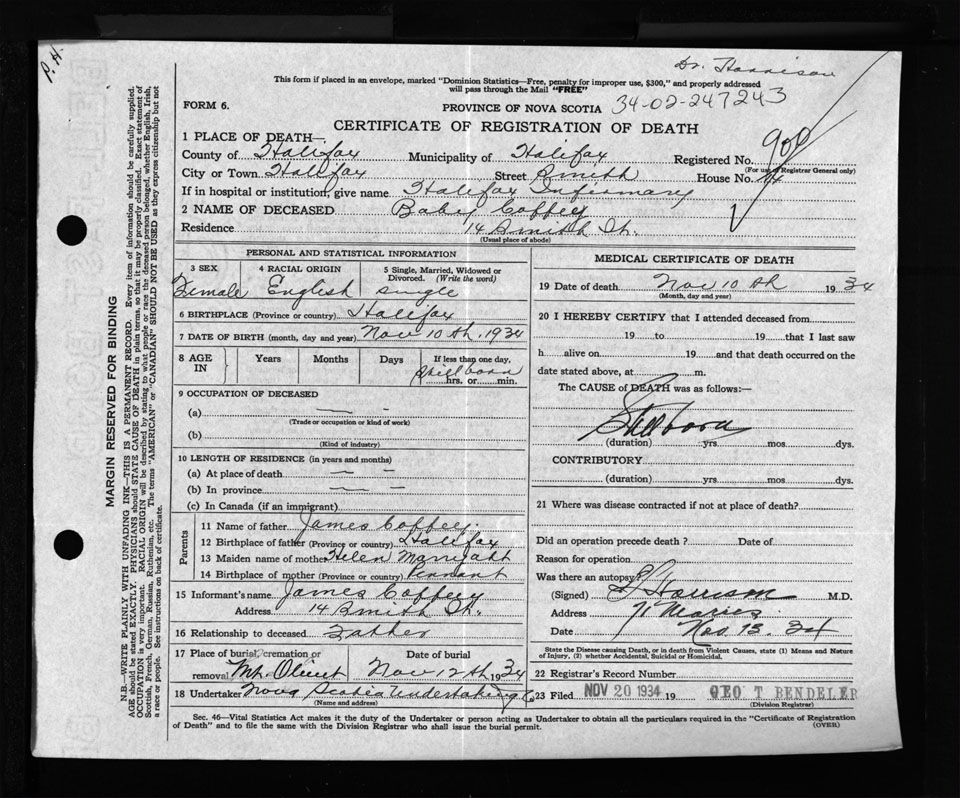 P. H.
Dr. Harrison
This form if placed in an envelope, marked "Dominion Statistics—Free, penalty for improper use, $300," and properly addressed
will pass through the Mail "FREE"
FORM 6.
PROVINCE OF NOVA SCOTIA 34-02-247243
CERTIFICATE OF REGISTRATION OF DEATH
1 PLACE OF DEATH—
County of Halifax Municipality of Halifax Registered No. 900
(For use of Registrar General only)
City or Town Halifax Street Smith House No. 14
If in hospital or institution, give name Halifax Infirmary
2 NAME OF DECEASED Baby Coffey
Residence 14 Smith St.
(Usual place of abode)
PERSONAL AND STATISTICAL INFORMATION
3 SEX 4 RACIAL ORIGIN 5 Single, Married, Widowed or
Divorced. (Write the word)
Female English single
6 BIRTHPLACE (Province or country) Halifax
7 DATE OF BIRTH (month, day and year) Nov 10th 1934
8 AGE IN Years Months Days If less than one day,
Stillborn
hrs. or min.
9 OCCUPATION OF DECEASED
(a) — —
(Trade or occupation or kind of work)
(b)
(Kind of industry)
10 LENGTH OF RESIDENCE (in years and months)
(a) At place of death — —
(b) In province — —
(c) In Canada (if an immigrant)
Parents
11 Name of father James Coffey
12 Birthplace of father (Province or country) Halifax
13 Maiden name of mother Helen
14 Birthplace of mother (Province or country)
15 Informant's name James Coffey
Address 14 Smith St.
16 Relationship to deceased Father
17 Place of burial, cremation or Date of burial
removal Mt. Olivet Nov 12th 1934
18 Undertaker Nova Scotia Undertaking Co
(Name and address)
MEDICAL CERTIFICATE OF DEATH
19 Date of death Nov 10th 1934
(Month, day and year)
20 I HEREBY CERTIFY that I attended deceased from
19 to 19 that I last saw
h alive on 19 and that death occurred on the
date stated above, at m.
The CAUSE of DEATH was as follows:—
Stillborn
(duration) yrs. mos. dys.
CONTRIBUTORY
(duration) yrs. mos. dys.
21 Where was disease contracted if not at place of death?
Did an operation precede death? Date of
Reason for operation
Was there an autopsy?
(Signed) Harrison M.D.
Address
Date Nov. 13. 34
State the Disease causing Death, or in death from Violent Causes, state (1) Means and Nature
of Injury, (2) whether Accidental, Suicidal or Homicidal.
22 Registrar's Record Number
23 Filed NOV 20 1934 19 GEO T BENDELER
(Division Registrar)
Sec. 46—Vital Statistics Act makes it the duty of the Undertaker or person acting as Undertaker to obtain all the particulars required in the "Certificate of Registration
of Death" and to file the same with the Division Registrar who shall issue the burial permit.
(OVER)
MARGIN RESERVED FOR BINDING
N.B.—WRITE PLAINLY WITH UNFADING INK—THIS IS A PERMANENT RECORD. Every item of information should be carefully supplied.
AGE should be stated EXACTLY. PHYSICIANS should STATE CAUSE OF DEATH in plain terms, so that it may be properly classified. Exact statement of
OCCUPATION is very important. RACIAL ORIGIN will be described by stating to what people or race the deceased person belonged, whether English, Irish,
Scottish, French, German, Russian, Ruthenian, etc. The terms "AMERICAN" or "CANADIAN" SHOULD NOT BE USED as they express citizenship but not
a race or people. See instructions on back of certificate.